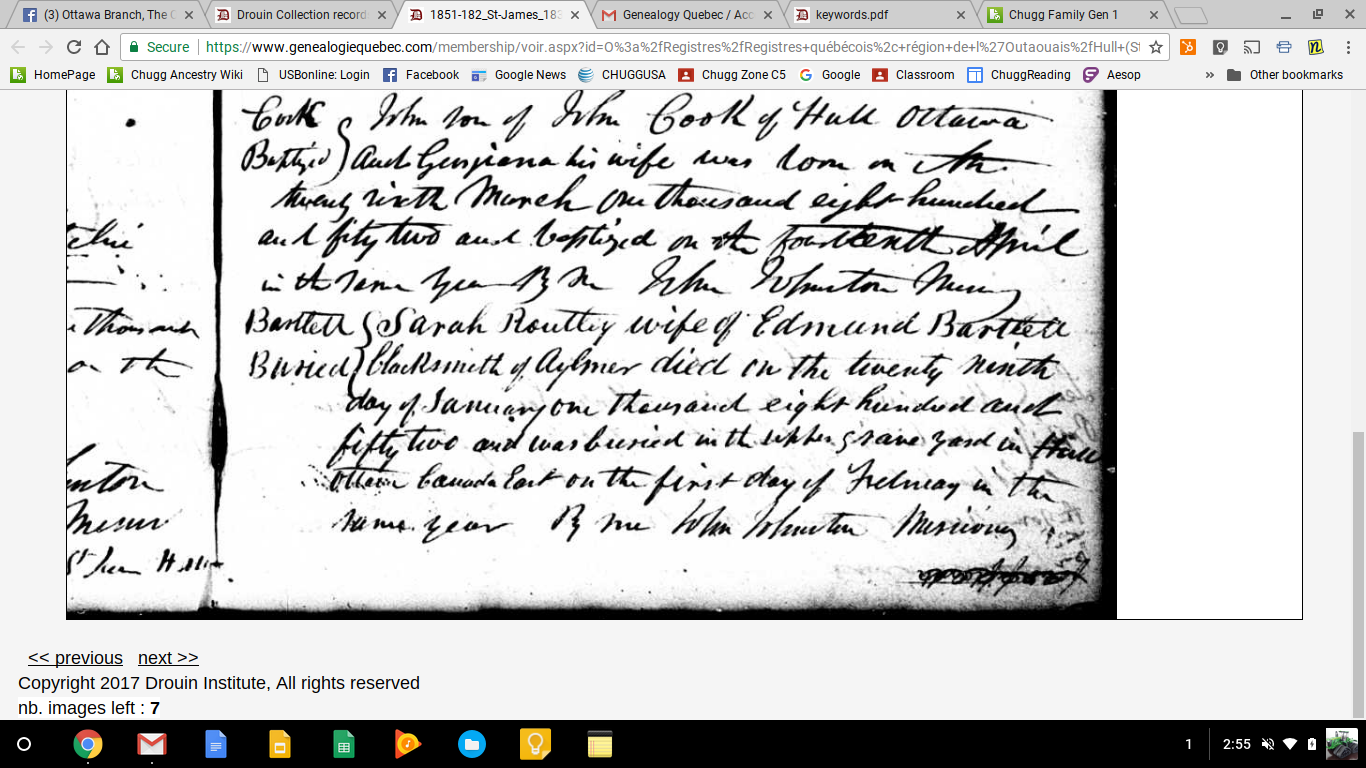 (3) Ottawa Branch, The
Drouin Collection record
1851-182_St-James_183
Genealogy Quebec / Acc
keywords.pdf
Chugg Family Gen 1
Secure https://www.genealogiequebec.com/membership/voir.aspx?id=O%3a%2fRegistres%2fRegistres+québécois%2c+région+de+l%27Outaouais%2fHull+(St
HomePage Chugg Ancestry Wiki USBonline: Login Facebook Google News CHUGGUSA Chugg Zone C5 Google Classroom ChuggReading Aesop » Other bookmarks
Cook John son of John Cook of Hull Ottawa
Baptized and Georgiana his wife was born on the
twenty ninth March one thousand eight hundred
and fifty two and baptized on the fourteenth April
in the same year By me John Johnston
Bartlett Sarah Routley wife of Edmund Bartlett
Buried blacksmith of Aylmer died on the twenty ninth
day of January one thousand eight hundred and
fifty two and was buried in the upper grave yard in Hull
Ottawa Canada East on the first day of February in the
same year By me John Johnston Missionary
thousand
on the
<< previous next >>
Copyright 2017 Drouin Institute, All rights reserved
nb. images left : 7
1 2:55